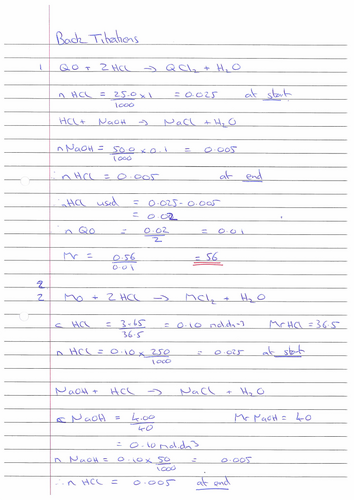 Back Titrations
1 QO + 2HCl → QCl₂ + H₂O
n HCl = 25.0 x 1 / 1000 = 0.025 at start
HCl + NaOH → NaCl + H₂O
n NaOH = 50.0 x 0.1 / 1000 = 0.005
∴ n HCl = 0.005 at end
∴ HCl used = 0.025 - 0.005
= 0.02
∴ n QO = 0.02 / 2 = 0.01
Mr = 0.56 / 0.01 = 56
2
2 MO + 2HCl → MCl₂ + H₂O
c HCl = 3.65 / 36.5 = 0.10 mol dm⁻³ Mr HCl = 36.5
n HCl = 0.10 x 250 / 1000 = 0.025 at start
NaOH + HCl → NaCl + H₂O
c NaOH = 4.00 / 40 Mr NaOH = 40
= 0.10 mol dm⁻³
n NaOH = 0.10 x 50 / 1000 = 0.005
∴ n HCl = 0.005 at end